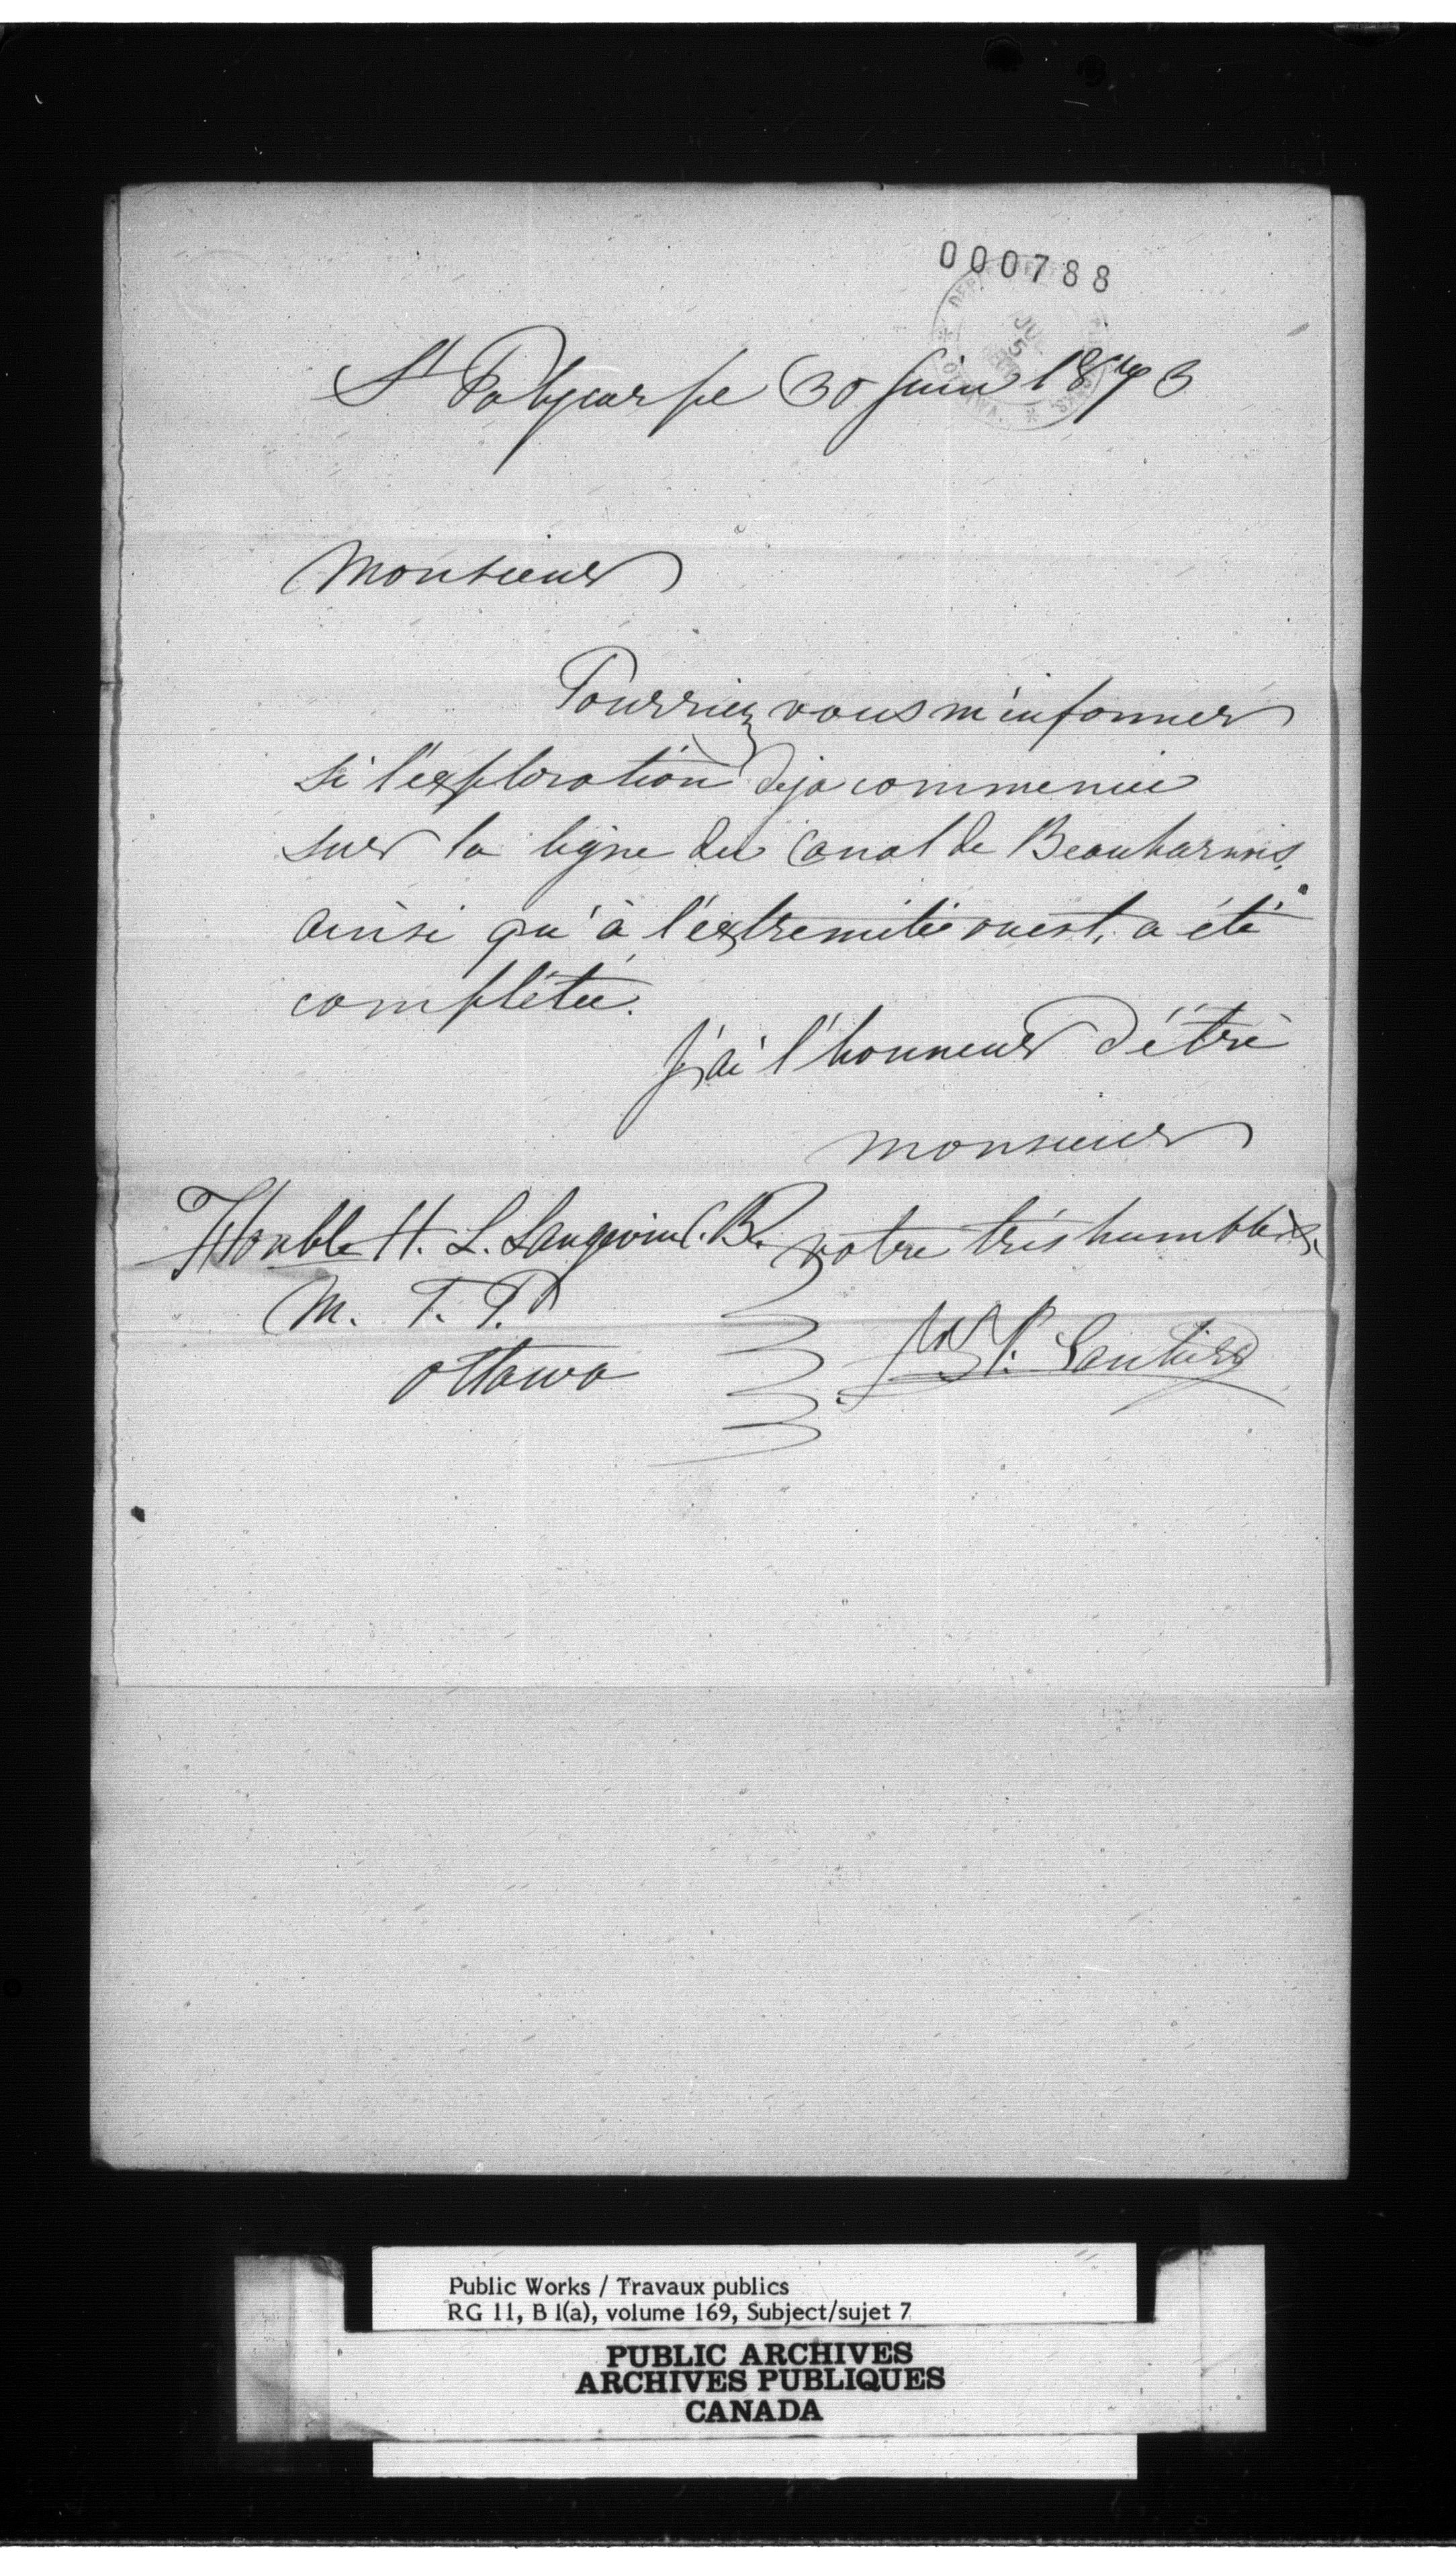 000788
St Polycarpe 30 Juin 1873
Monsieur
Pourriez vous m'informer
si l'exploration deja commencée
sur la ligne du Canal de Beauharnois,
ainsi qu'à l'extremitée ouest, a été
complétée.
J'ai l'honneur d'être
monsieur
votre très humble s.
Honble H. L. Langevin C.B.
M. T. P.
Ottawa
Public Works / Travaux publics
RG 11, B 1(a), volume 169, Subject/sujet 7
PUBLIC ARCHIVES
ARCHIVES PUBLIQUES
CANADA